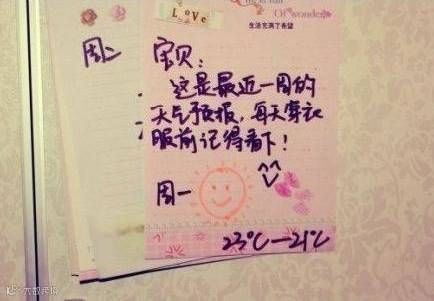 LOVE
Of wonder
生活充满了希望
周二
宝贝：
这是最近一周的
天气预报，每天穿衣
服前记得看下！
周一
23℃—21℃